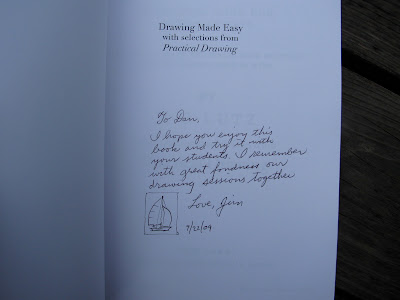 Drawing Made Easy
with selections from
Practical Drawing
To Dan,
I hope you enjoy this
book and try it with
your students. I remember
with great fondness our
drawing sessions together
Love, Jim
9/22/09